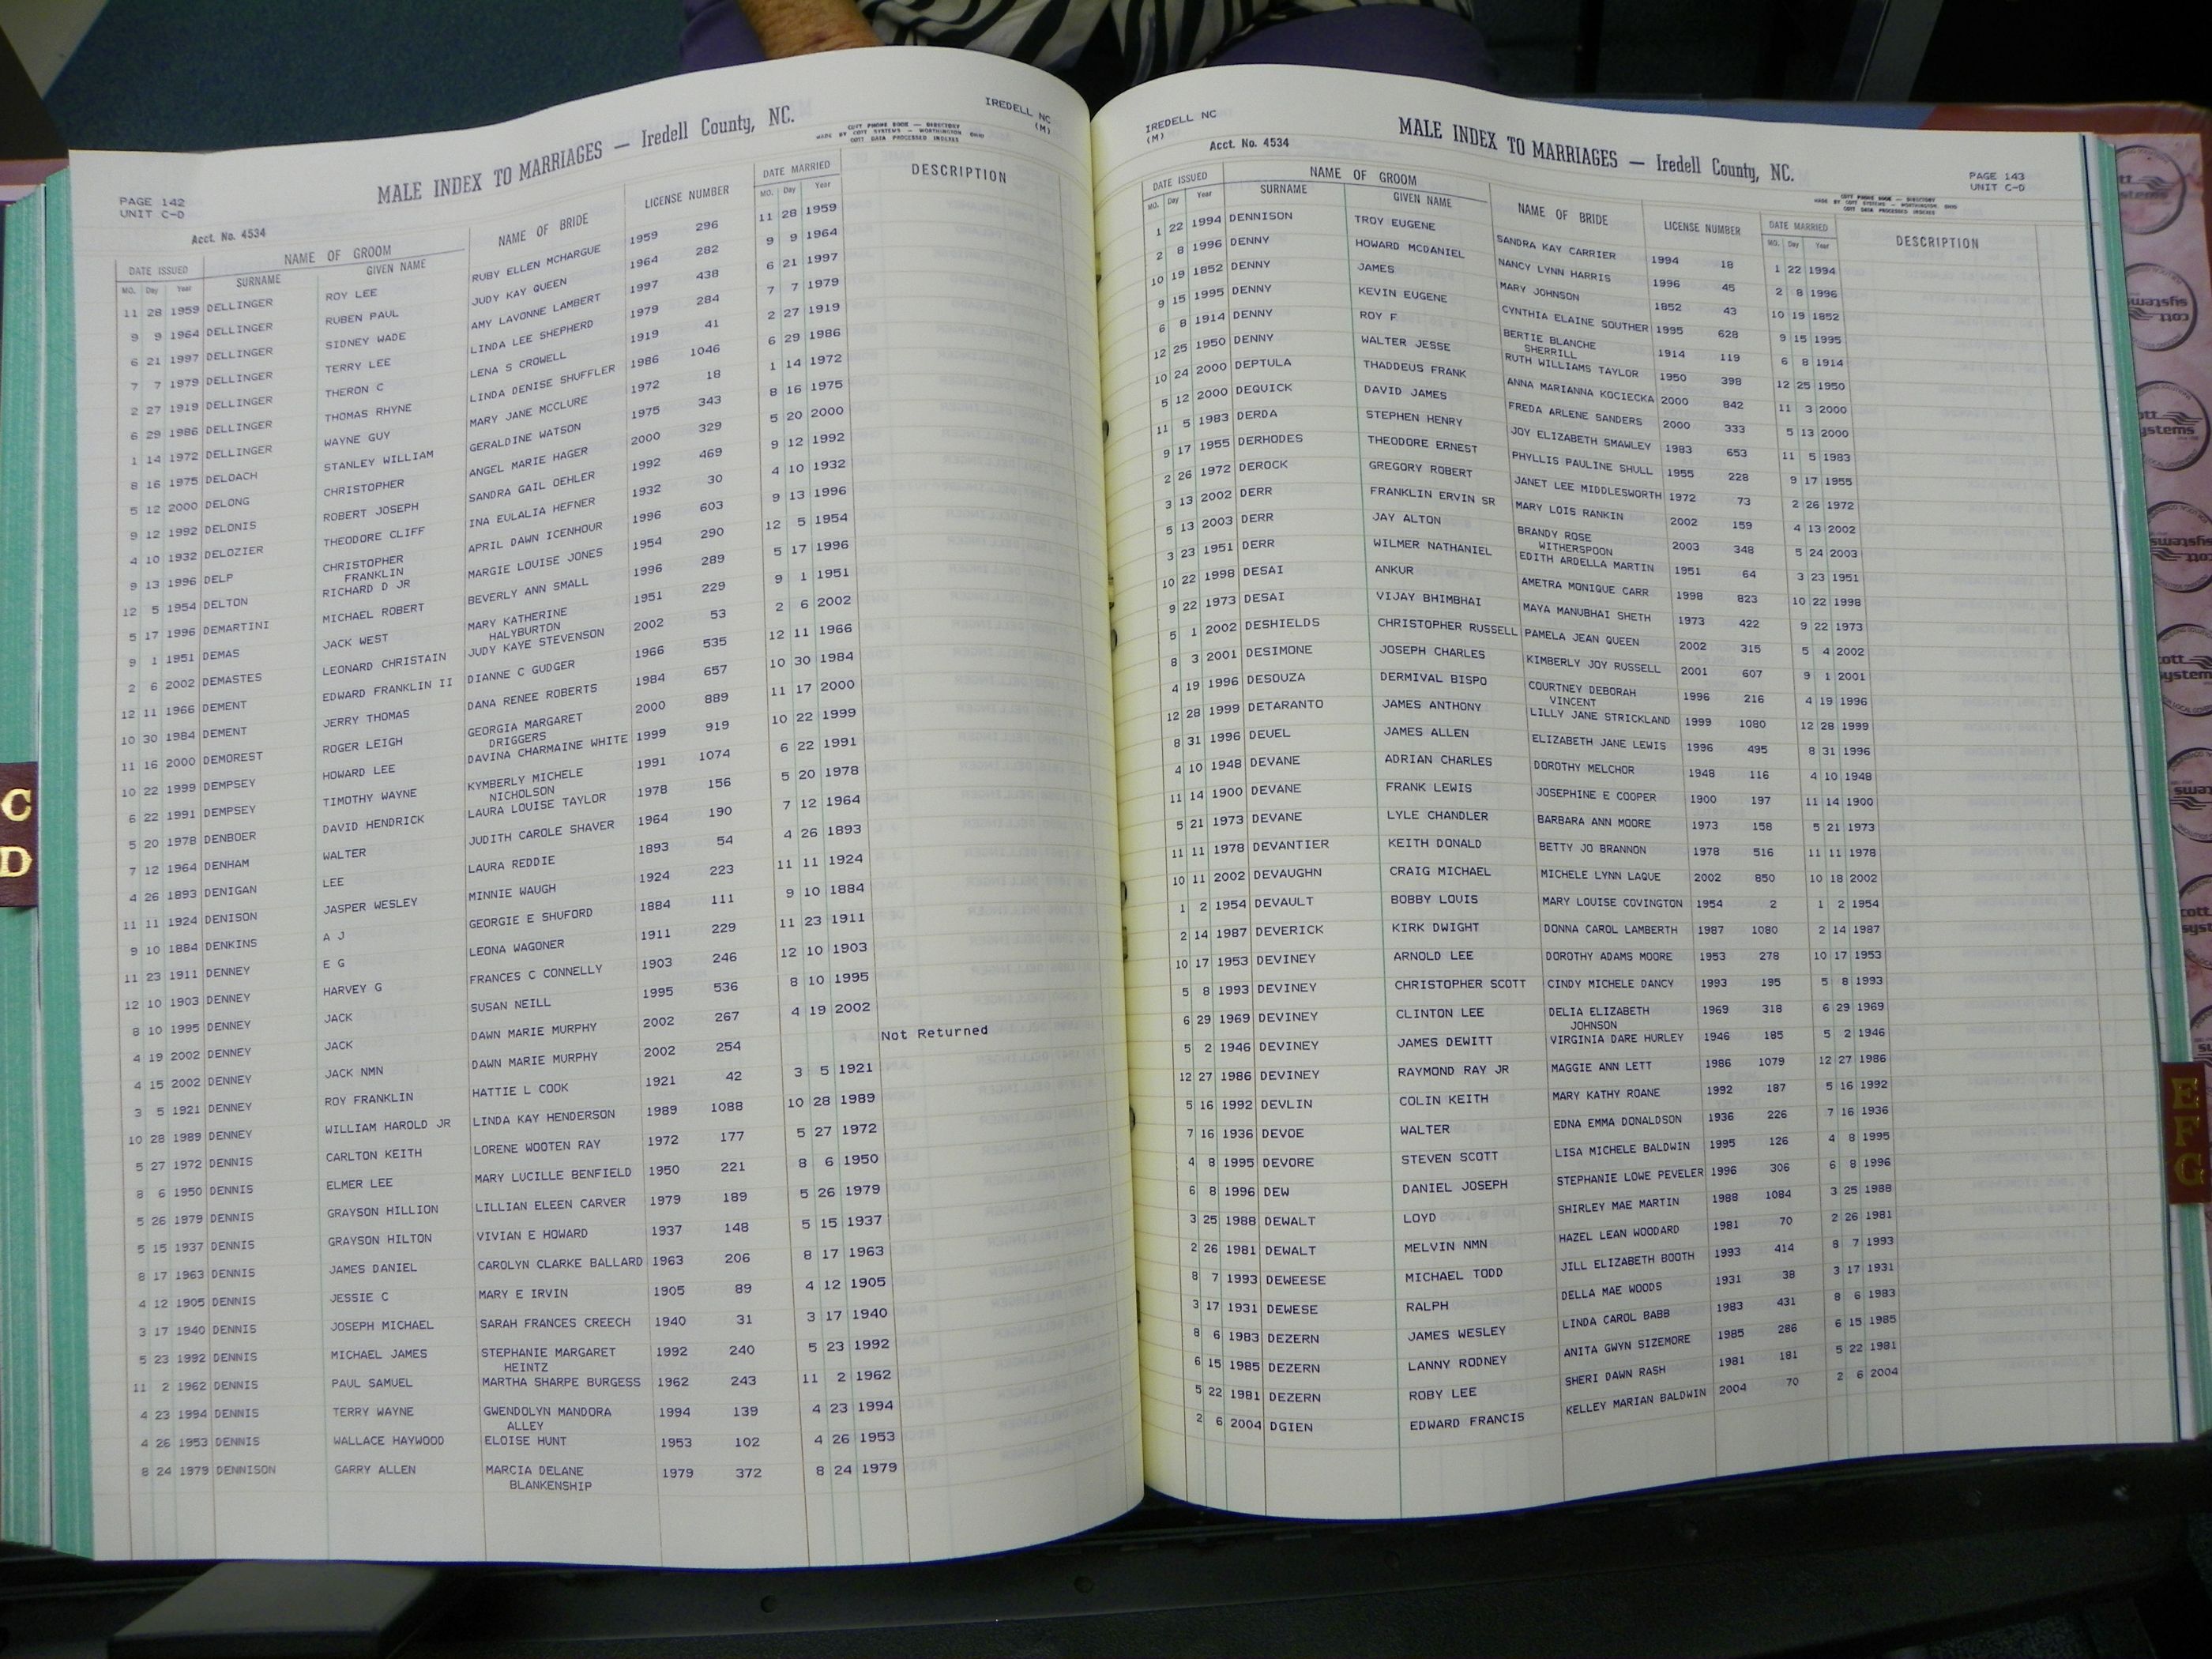 IREDELL NC
(M)
MALE INDEX TO MARRIAGES — Iredell County, NC.
COTT PHONE BOOK — DIRECTORY
MADE BY COTT SYSTEMS — WORTHINGTON, OHIO
COTT DATA PROCESSED INDEXES
PAGE 142
UNIT C-D
Acct. No. 4534
DATE ISSUED NAME OF GROOM NAME OF BRIDE LICENSE NUMBER DATE MARRIED DESCRIPTION
MO. Day Year SURNAME GIVEN NAME MO. Day Year
11 28 1959 DELLINGER ROY LEE RUBY ELLEN MCHARGUE 1959 296 11 28 1959
9 9 1964 DELLINGER RUBEN PAUL JUDY KAY QUEEN 1964 282 9 9 1964
6 21 1997 DELLINGER SIDNEY WADE AMY LAVONNE LAMBERT 1997 438 6 21 1997
7 7 1979 DELLINGER TERRY LEE LINDA LEE SHEPHERD 1979 284 7 7 1979
2 27 1919 DELLINGER THERON C LENA S CROWELL 1919 41 2 27 1919
6 29 1986 DELLINGER THOMAS RHYNE LINDA DENISE SHUFFLER 1986 1046 6 29 1986
1 14 1972 DELLINGER WAYNE GUY MARY JANE MCCLURE 1972 18 1 14 1972
8 16 1975 DELOACH STANLEY WILLIAM GERALDINE WATSON 1975 343 8 16 1975
5 12 2000 DELONG CHRISTOPHER ANGEL MARIE HAGER 2000 329 5 20 2000
9 12 1992 DELONIS ROBERT JOSEPH SANDRA GAIL OEHLER 1992 469 9 12 1992
4 10 1932 DELOZIER THEODORE CLIFF INA EULALIA HEFNER 1932 30 4 10 1932
9 13 1996 DELP CHRISTOPHER APRIL DAWN ICENHOUR 1996 603 9 13 1996
FRANKLIN
12 5 1954 DELTON RICHARD D JR MARGIE LOUISE JONES 1954 290 12 5 1954
5 17 1996 DEMARTINI MICHAEL ROBERT BEVERLY ANN SMALL 1996 289 5 17 1996
9 1 1951 DEMAS JACK WEST MARY KATHERINE 1951 229 9 1 1951
HALYBURTON
2 6 2002 DEMASTES LEONARD CHRISTAIN JUDY KAYE STEVENSON 2002 53 2 6 2002
12 11 1966 DEMENT EDWARD FRANKLIN II DIANNE C GUDGER 1966 535 12 11 1966
10 30 1984 DEMENT JERRY THOMAS DANA RENEE ROBERTS 1984 657 10 30 1984
11 16 2000 DEMOREST ROGER LEIGH GEORGIA MARGARET 2000 889 11 17 2000
DRIGGERS
10 22 1999 DEMPSEY HOWARD LEE DAVINA CHARMAINE WHITE 1999 919 10 22 1999
6 22 1991 DEMPSEY TIMOTHY WAYNE KYMBERLY MICHELE 1991 1074 6 22 1991
NICHOLSON
5 20 1978 DENBOER DAVID HENDRICK LAURA LOUISE TAYLOR 1978 156 5 20 1978
7 12 1964 DENHAM WALTER JUDITH CAROLE SHAVER 1964 190 7 12 1964
4 26 1893 DENIGAN LEE LAURA REDDIE 1893 54 4 26 1893
11 11 1924 DENISON JASPER WESLEY MINNIE WAUGH 1924 223 11 11 1924
9 10 1884 DENKINS A J GEORGIE E SHUFORD 1884 111 9 10 1884
11 23 1911 DENNEY E G LEONA WAGONER 1911 229 11 23 1911
12 10 1903 DENNEY HARVEY G FRANCES C CONNELLY 1903 246 12 10 1903
8 10 1995 DENNEY JACK SUSAN NEILL 1995 536 8 10 1995
4 19 2002 DENNEY JACK DAWN MARIE MURPHY 2002 267 4 19 2002
4 15 2002 DENNEY JACK NMN DAWN MARIE MURPHY 2002 254 Not Returned
3 5 1921 DENNEY ROY FRANKLIN HATTIE L COOK 1921 42 3 5 1921
10 28 1989 DENNEY WILLIAM HAROLD JR LINDA KAY HENDERSON 1989 1088 10 28 1989
5 27 1972 DENNIS CARLTON KEITH LORENE WOOTEN RAY 1972 177 5 27 1972
8 6 1950 DENNIS ELMER LEE MARY LUCILLE BENFIELD 1950 221 8 6 1950
5 26 1979 DENNIS GRAYSON HILLION LILLIAN ELEEN CARVER 1979 189 5 26 1979
5 15 1937 DENNIS GRAYSON HILTON VIVIAN E HOWARD 1937 148 5 15 1937
8 17 1963 DENNIS JAMES DANIEL CAROLYN CLARKE BALLARD 1963 206 8 17 1963
4 12 1905 DENNIS JESSIE C MARY E IRVIN 1905 89 4 12 1905
3 17 1940 DENNIS JOSEPH MICHAEL SARAH FRANCES CREECH 1940 31 3 17 1940
5 23 1992 DENNIS MICHAEL JAMES STEPHANIE MARGARET 1992 240 5 23 1992
HEINTZ
11 2 1962 DENNIS PAUL SAMUEL MARTHA SHARPE BURGESS 1962 243 11 2 1962
4 23 1994 DENNIS TERRY WAYNE GWENDOLYN MANDORA 1994 139 4 23 1994
ALLEY
4 26 1953 DENNIS WALLACE HAYWOOD ELOISE HUNT 1953 102 4 26 1953
8 24 1979 DENNISON GARRY ALLEN MARCIA DELANE 1979 372 8 24 1979
BLANKENSHIP
C
D
IREDELL NC
(M)
Acct. No. 4534
MALE INDEX TO MARRIAGES — Iredell County, NC.
PAGE 143
UNIT C-D
COTT PHONE BOOK — DIRECTORY
MADE BY COTT SYSTEMS — WORTHINGTON, OHIO
COTT DATA PROCESSED INDEXES
DATE ISSUED NAME OF GROOM NAME OF BRIDE LICENSE NUMBER DATE MARRIED DESCRIPTION
MO. Day Year SURNAME GIVEN NAME MO. Day Year
1 22 1994 DENNISON TROY EUGENE SANDRA KAY CARRIER 1994 18 1 22 1994
2 8 1996 DENNY HOWARD MCDANIEL NANCY LYNN HARRIS 1996 45 2 8 1996
10 19 1852 DENNY JAMES MARY JOHNSON 1852 43 10 19 1852
9 15 1995 DENNY KEVIN EUGENE CYNTHIA ELAINE SOUTHER 1995 628 9 15 1995
6 8 1914 DENNY ROY F BERTIE BLANCHE 1914 119 6 8 1914
SHERRILL
12 25 1950 DENNY WALTER JESSE RUTH WILLIAMS TAYLOR 1950 398 12 25 1950
10 24 2000 DEPTULA THADDEUS FRANK ANNA MARIANNA KOCIECKA 2000 842 11 3 2000
5 12 2000 DEQUICK DAVID JAMES FREDA ARLENE SANDERS 2000 333 5 13 2000
11 5 1983 DERDA STEPHEN HENRY JOY ELIZABETH SMAWLEY 1983 653 11 5 1983
9 17 1955 DERHODES THEODORE ERNEST PHYLLIS PAULINE SHULL 1955 228 9 17 1955
2 26 1972 DEROCK GREGORY ROBERT JANET LEE MIDDLESWORTH 1972 73 2 26 1972
3 13 2002 DERR FRANKLIN ERVIN SR MARY LOIS RANKIN 2002 159 4 13 2002
5 13 2003 DERR JAY ALTON BRANDY ROSE 2003 348 5 24 2003
WITHERSPOON
3 23 1951 DERR WILMER NATHANIEL EDITH ARDELLA MARTIN 1951 64 3 23 1951
10 22 1998 DESAI ANKUR AMETRA MONIQUE CARR 1998 823 10 22 1998
9 22 1973 DESAI VIJAY BHIMBHAI MAYA MANUBHAI SHETH 1973 422 9 22 1973
5 1 2002 DESHIELDS CHRISTOPHER RUSSELL PAMELA JEAN QUEEN 2002 315 5 4 2002
8 3 2001 DESIMONE JOSEPH CHARLES KIMBERLY JOY RUSSELL 2001 607 9 1 2001
4 19 1996 DESOUZA DERMIVAL BISPO COURTNEY DEBORAH 1996 216 4 19 1996
VINCENT
12 28 1999 DETARANTO JAMES ANTHONY LILLY JANE STRICKLAND 1999 1080 12 28 1999
8 31 1996 DEUEL JAMES ALLEN ELIZABETH JANE LEWIS 1996 495 8 31 1996
4 10 1948 DEVANE ADRIAN CHARLES DOROTHY MELCHOR 1948 116 4 10 1948
11 14 1900 DEVANE FRANK LEWIS JOSEPHINE E COOPER 1900 197 11 14 1900
5 21 1973 DEVANE LYLE CHANDLER BARBARA ANN MOORE 1973 158 5 21 1973
11 11 1978 DEVANTIER KEITH DONALD BETTY JO BRANNON 1978 516 11 11 1978
10 11 2002 DEVAUGHN CRAIG MICHAEL MICHELE LYNN LAQUE 2002 850 10 18 2002
1 2 1954 DEVAULT BOBBY LOUIS MARY LOUISE COVINGTON 1954 2 1 2 1954
2 14 1987 DEVERICK KIRK DWIGHT DONNA CAROL LAMBERTH 1987 1080 2 14 1987
10 17 1953 DEVINEY ARNOLD LEE DOROTHY ADAMS MOORE 1953 278 10 17 1953
5 8 1993 DEVINEY CHRISTOPHER SCOTT CINDY MICHELE DANCY 1993 195 5 8 1993
6 29 1969 DEVINEY CLINTON LEE DELIA ELIZABETH 1969 318 6 29 1969
JOHNSON
5 2 1946 DEVINEY JAMES DEWITT VIRGINIA DARE HURLEY 1946 185 5 2 1946
12 27 1986 DEVINEY RAYMOND RAY JR MAGGIE ANN LETT 1986 1079 12 27 1986
5 16 1992 DEVLIN COLIN KEITH MARY KATHY ROANE 1992 187 5 16 1992
7 16 1936 DEVOE WALTER EDNA EMMA DONALDSON 1936 226 7 16 1936
4 8 1995 DEVORE STEVEN SCOTT LISA MICHELE BALDWIN 1995 126 4 8 1995
6 8 1996 DEW DANIEL JOSEPH STEPHANIE LOWE PEVELER 1996 306 6 8 1996
3 25 1988 DEWALT LOYD SHIRLEY MAE MARTIN 1988 1084 3 25 1988
2 26 1981 DEWALT MELVIN NMN HAZEL LEAN WOODARD 1981 70 2 26 1981
8 7 1993 DEWEESE MICHAEL TODD JILL ELIZABETH BOOTH 1993 414 8 7 1993
3 17 1931 DEWESE RALPH DELLA MAE WOODS 1931 38 3 17 1931
8 6 1983 DEZERN JAMES WESLEY LINDA CAROL BABB 1983 431 8 6 1983
6 15 1985 DEZERN LANNY RODNEY ANITA GWYN SIZEMORE 1985 286 6 15 1985
5 22 1981 DEZERN ROBY LEE SHERI DAWN RASH 1981 181 5 22 1981
2 6 2004 DGIEN EDWARD FRANCIS KELLEY MARIAN BALDWIN 2004 70 2 6 2004
E
F
G